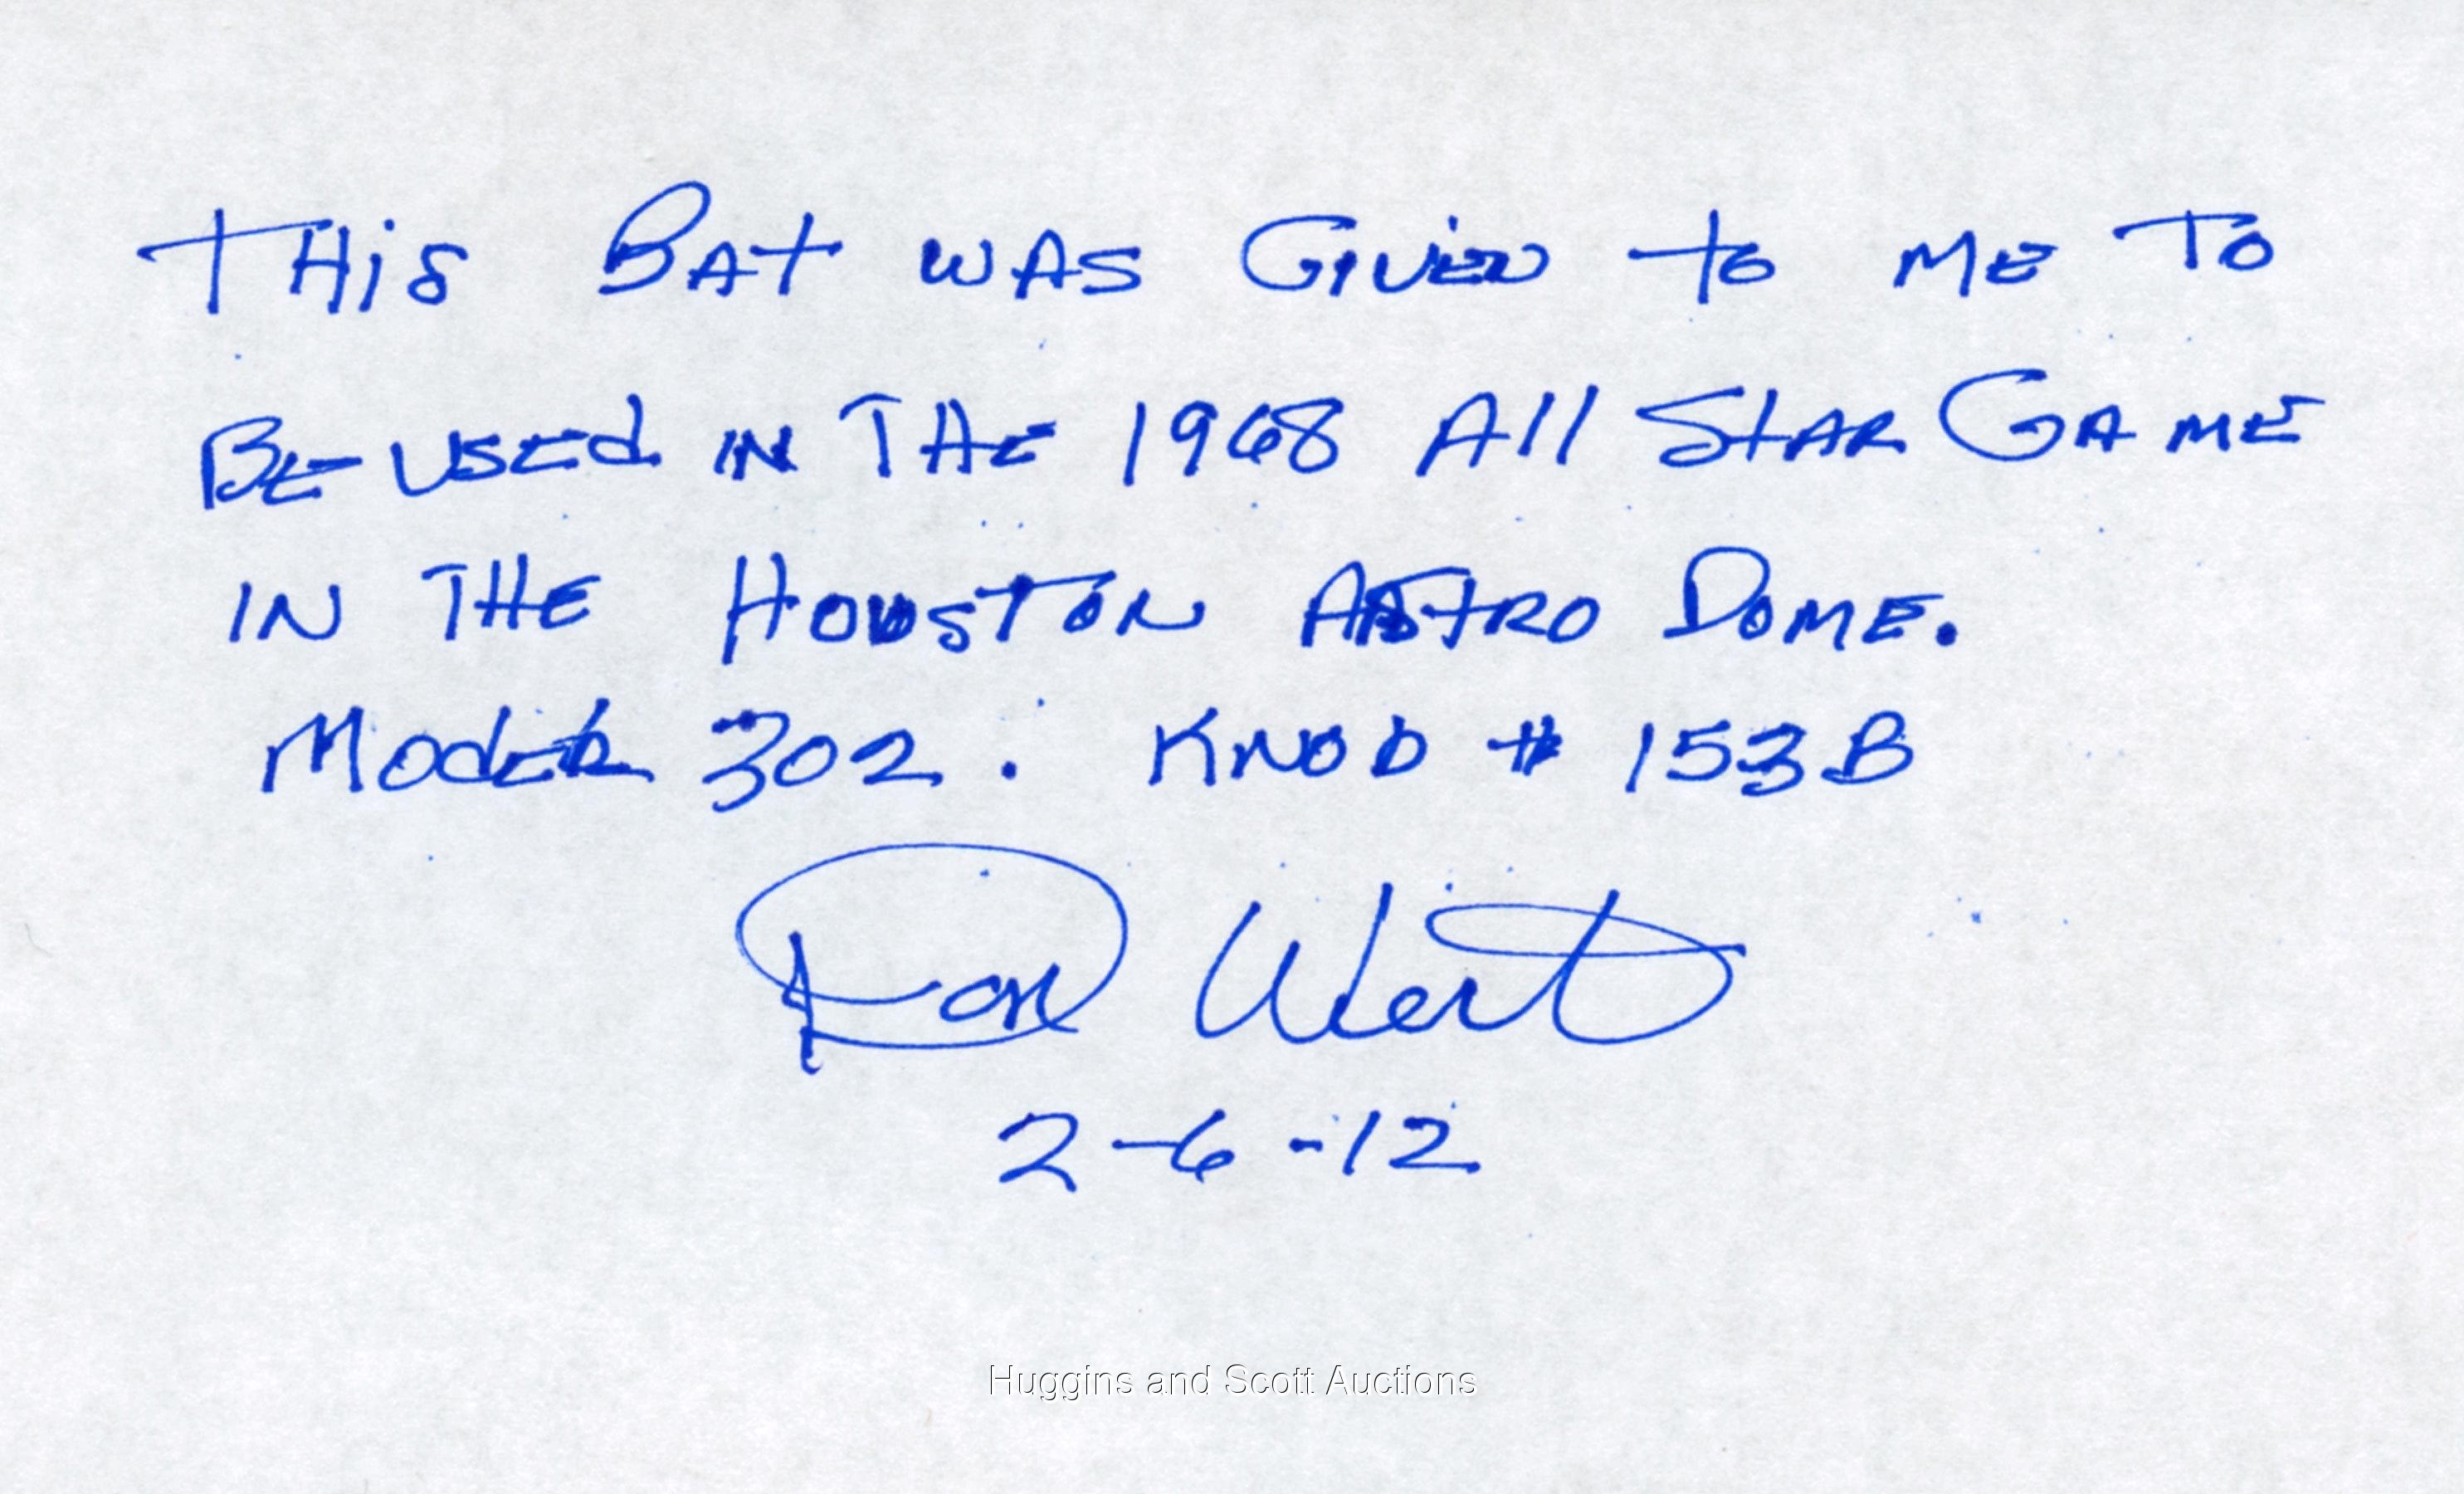 THiS BAt WAS GiVEN to ME TO
BE USEd IN THE 1968 All StAR GAME
IN THE HOUSTON ASTRO DOME.
ModEL 302. KNOB # 153B
Don Wert
2-6-12
Huggins and Scott Auctions